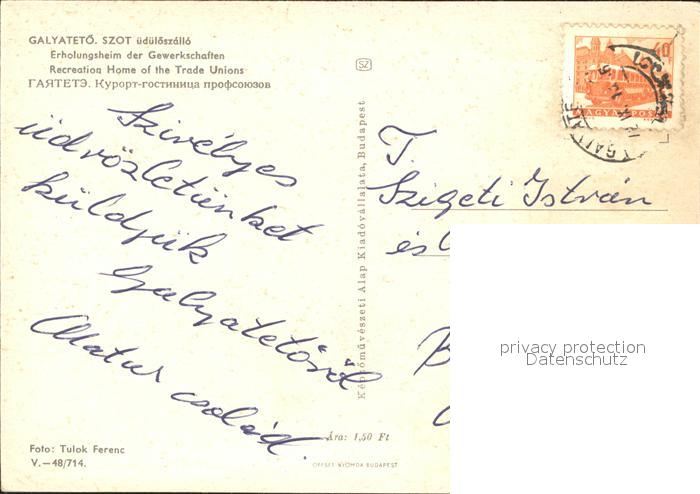 GALYATETŐ. SZOT üdülőszálló
Erholungsheim der Gewerkschaften
Recreation Home of the Trade Unions
ГАЯТЕТЭ. Курорт-гостиница профсоюзов
Szívélyes
üdvözletünket
küldjük
Galyatetőről
Matus család.
Foto: Tulok Ferenc
V.—48/714.
SZ
Képzőművészeti Alap Kiadóvállalata, Budapest
Ára: 1,50 Ft
OFFSET NYOMDA BUDAPEST
40
MAGYAR POSTA
T.
Szigeti István
és
privacy protection
Datenschutz